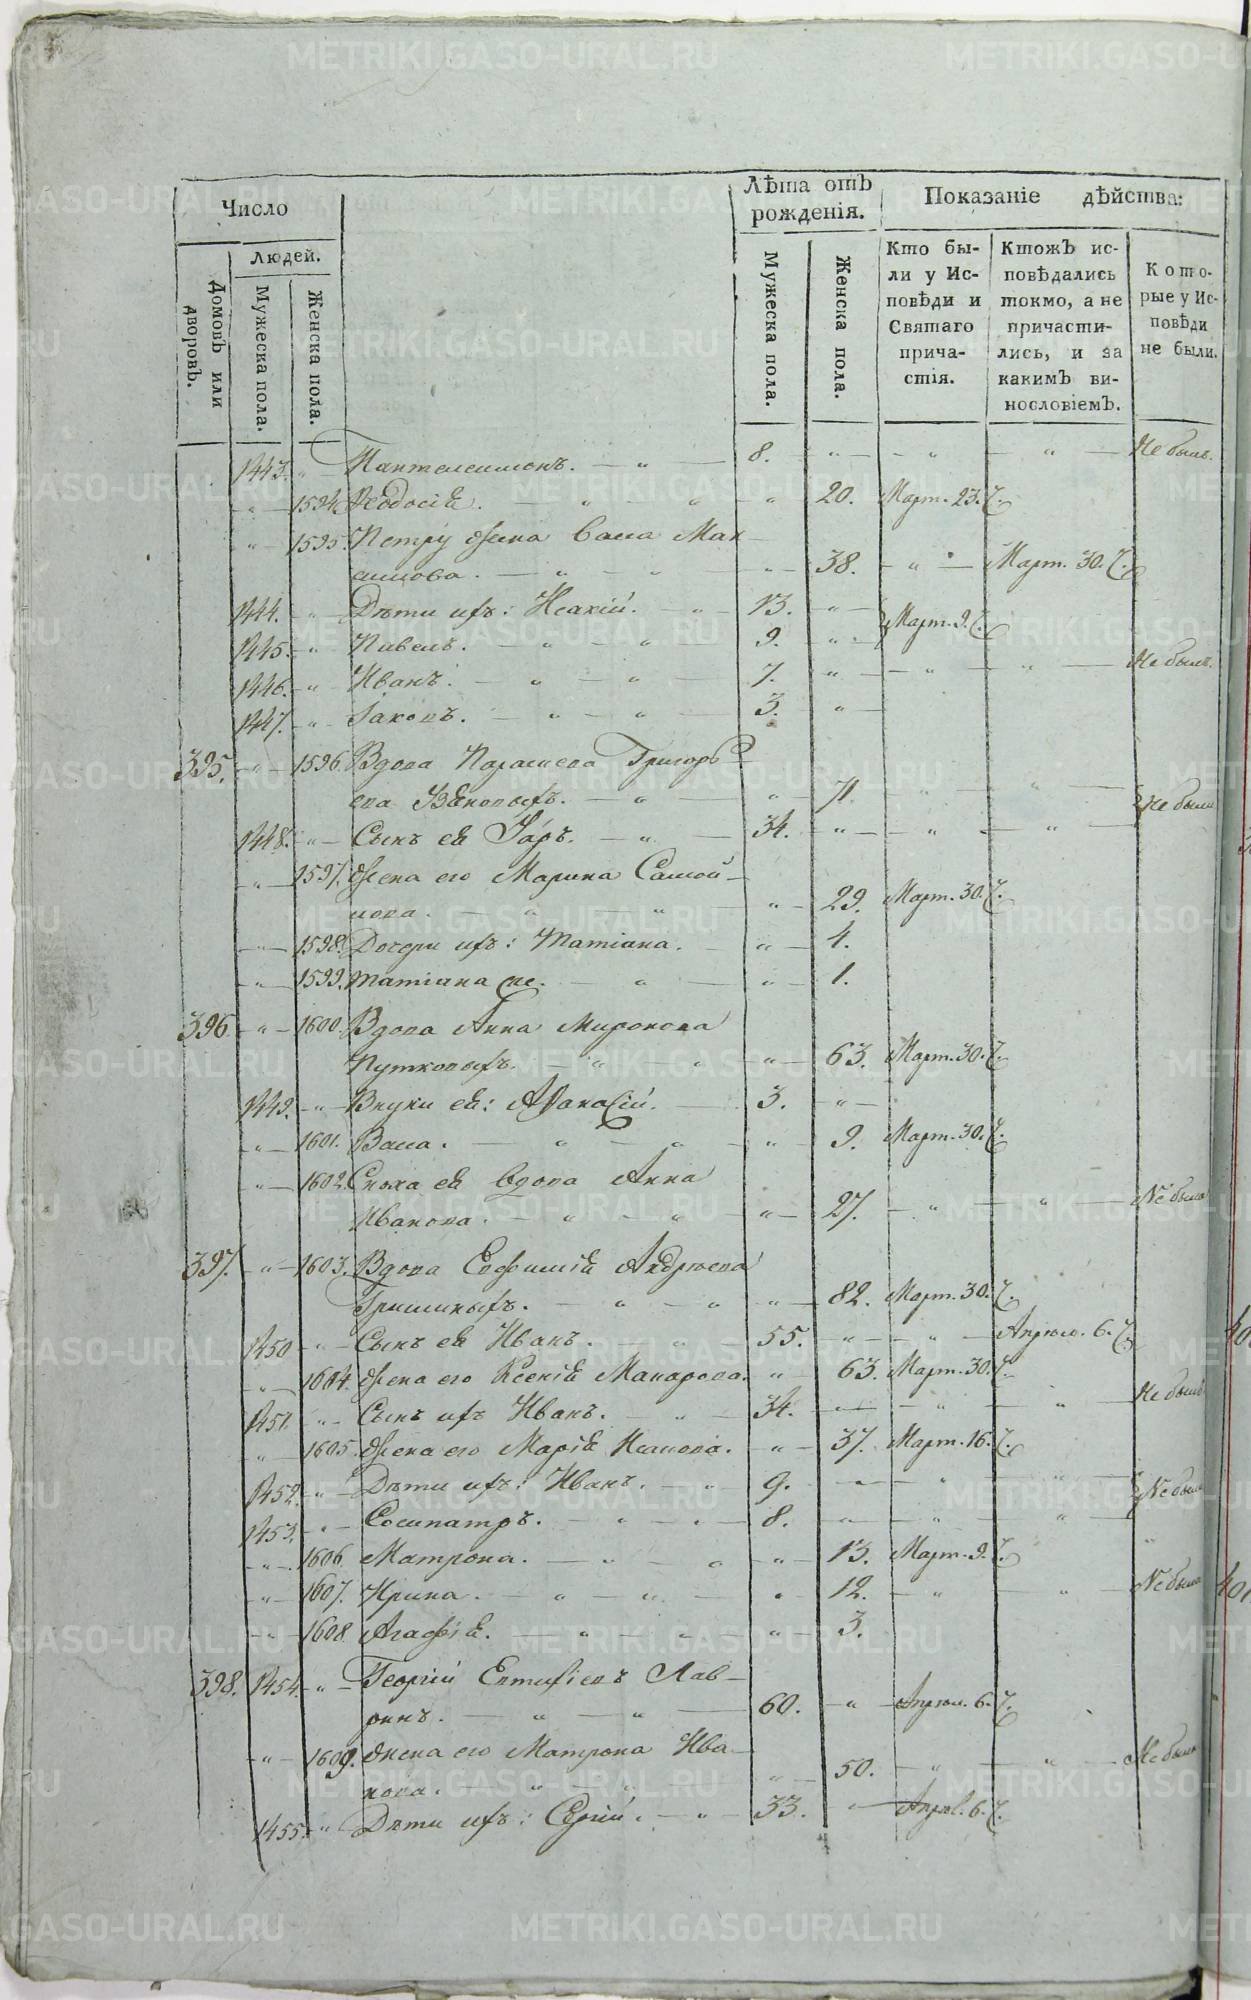 Число
Лѣта отъ рожденія.
Показаніе дѣйства:
Домовъ или дворовъ.
Людей.
Мужеска пола.
Женска пола.
Мужеска пола.
Женска пола.
Кто были у Исповѣди и Святаго причастія.
Ктожъ исповѣдались токмо, а не причастились, и за какимъ винословіемъ.
Которые у Исповѣди не были.
1443. Пантелеимонъ. 8. Не былъ.
1594. Ѳеодосія. 20. Март. 23.
1595. Петру жена Васса Мак
симова. 38. Март. 30.
1444. Дѣти ихъ: Исакій. 13. Март. 9.
1445. Павелъ. 9.
1446. Иванъ. 7. Не былъ.
1447. Іаковъ. 3.
395. 1596. Вдова Параскева Григорь
ева 71. Не были
1448. Сынъ ея 34.
1597. Жена его Марина Самой-
лова. 29. Март. 30.
1598. Дочери ихъ: Татіана. 4.
1599. Татіана же. 1.
396. 1600. Вдова Анна Миронова
Путковыхъ. 63. Март. 30.
1449. Внуки ея: Аѳанасій. 3.
1601. Васса. 9. Март. 30.
1602. Сноха ея вдова Анна
Иванова. 27. Не была
397. 1603. Вдова Евфимія Андреева
Гришиныхъ. 82. Март. 30.
1450 Сынъ ея Иванъ. 55. Апрѣл. 6.
1604. Жена его Ксенія Макарова. 63. Март. 30.
1451. Сынъ ихъ Иванъ. 34. Не былъ
1605. Жена его Марія Исакова. 37. Март. 16.
1452. Дѣти ихъ: Иванъ. 9. Не были
1453. Сосипатръ. 8.
1606. Матрона. 13. Март. 9.
1607. Ирина. 12. Не была
1608. Агафія. 3.
398. 1454. Георгій Евтихіевъ Лав-
ринъ. 60. Апрѣл. 6.
1609. Жена его Матрона Ива-
нова. 50. Не была
1455. Дѣти ихъ: Сергій. 33. Апрѣл. 6.
METRIKI.GASO-URAL.RU